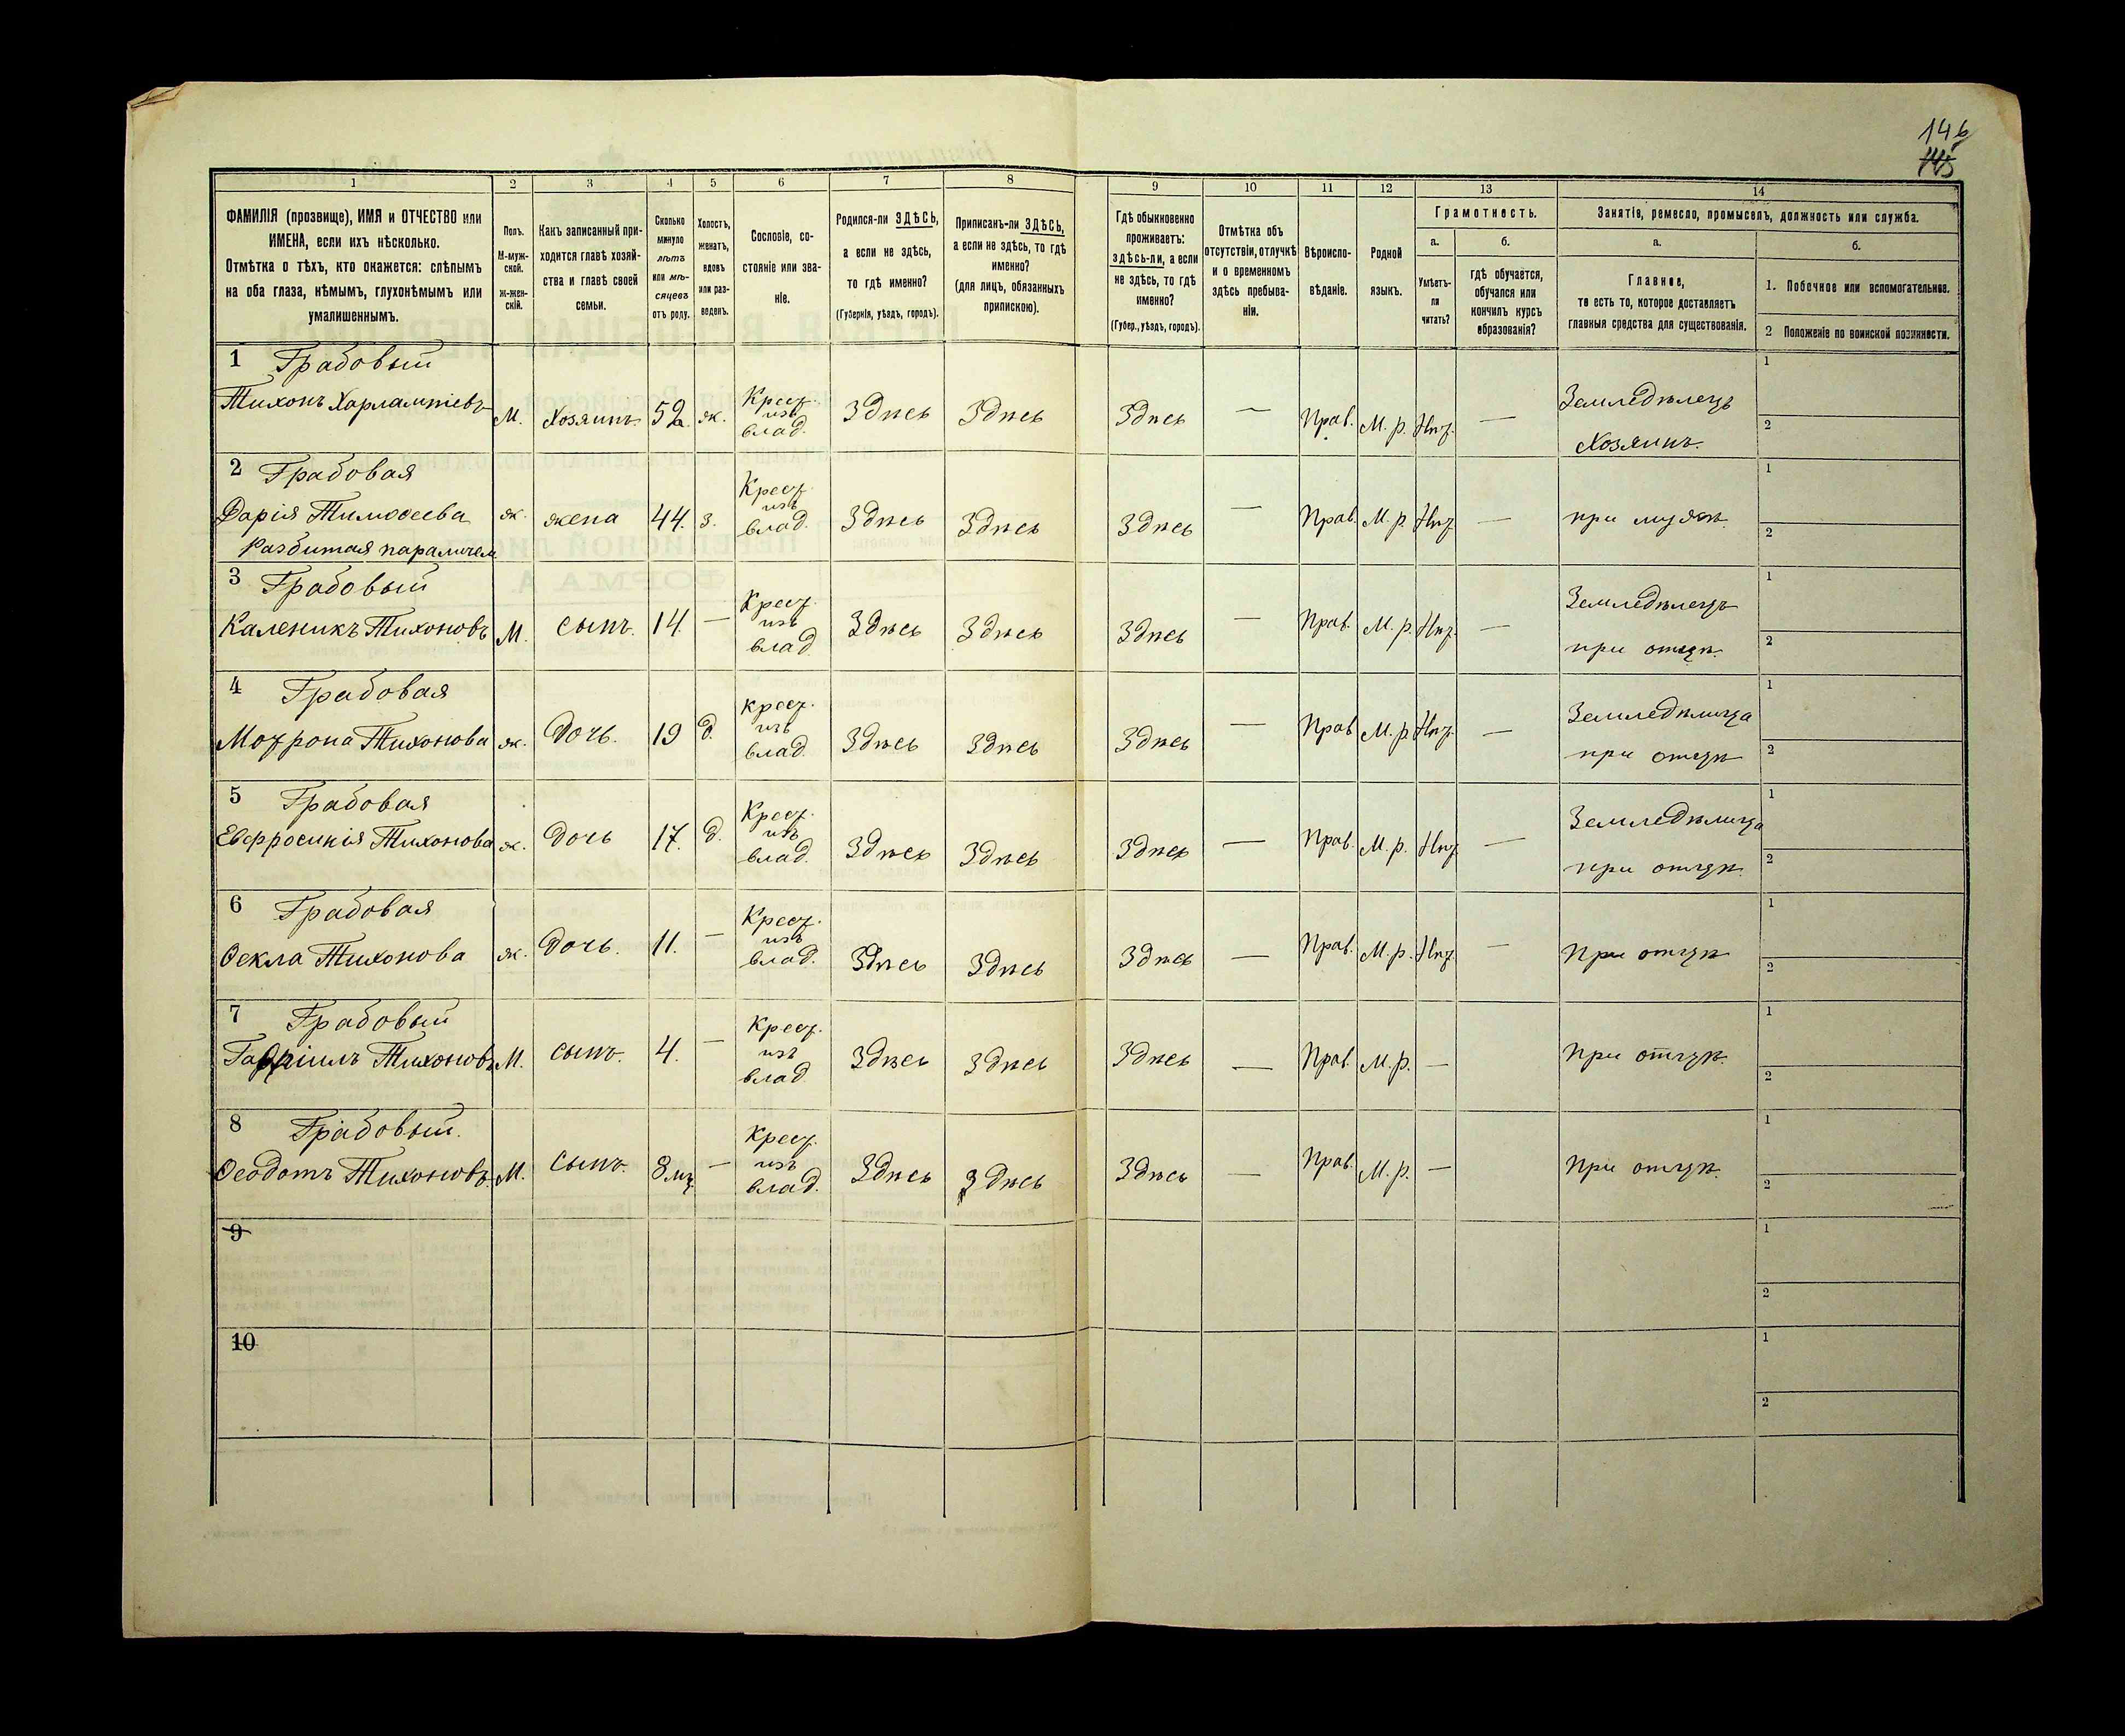 146
145
1 2 3 4 5 6 7 8 9 10 11 12 13 14
ФАМИЛІЯ (прозвище), ИМЯ и ОТЧЕСТВО или
ИМЕНА, если ихъ нѣсколько.
Отмѣтка о тѣхъ, кто окажется: слѣпымъ
на оба глаза, нѣмымъ, глухонѣмымъ или
умалишеннымъ.
Полъ.
М-муж-
ской.
Ж-жен-
скій.
Какъ записанный при-
ходится главѣ хозяй-
ства и главѣ своей
семьи.
Сколько
минуло
лѣтъ
или мѣ-
сяцевъ
отъ роду.
Холостъ,
женатъ,
вдовъ
или раз-
веденъ.
Сословіе, со-
стояніе или зва-
ніе.
Родился-ли ЗДѢСЬ,
а если не здѣсь,
то гдѣ именно?
(Губернія, уѣздъ, городъ).
Приписанъ-ли ЗДѢСЬ,
а если не здѣсь, то гдѣ
именно?
(для лицъ, обязанныхъ
припискою).
Гдѣ обыкновенно
проживаетъ:
здѣсь-ли, а если
не здѣсь, то гдѣ
именно?
(Губер., уѣздъ, городъ).
Отмѣтка объ
отсутствіи, отлучкѣ
и о временномъ
здѣсь пребыва-
ніи.
Вѣроиспо-
вѣданіе.
Родной
языкъ.
Грамотность.
а.
Умѣетъ-
ли
читать?
б.
гдѣ обучается,
обучался или
кончилъ курсъ
образованія?
Занятіе, ремесло, промыселъ, должность или служба.
а.
Главное,
то есть то, которое доставляетъ
главныя средства для существованія.
б.
1. Побочное или вспомогательное.
2 Положеніе по воинской повинности.
1 Грабовый
Тихонъ Харлампіевъ М. Хозяинъ 52 ж. Крест. изъ влад. Здѣсь Здѣсь Здѣсь — Прав. М. р. Нѣт. — Земледѣлецъ 1
Хозяинъ. 2
2 Грабовая
Дарія Тимоѳеева ж. жена 44. з. Крест. изъ влад. Здѣсь Здѣсь Здѣсь — Прав. М. р. Нѣт — при мужѣ. 1
Разбитая параличем 2
3 Грабовый
Каленикъ Тихоновъ М. сынъ. 14. — Крест. изъ влад. Здѣсь Здѣсь Здѣсь — Прав. М. р. Нѣт. — Земледѣлецъ 1
при отцѣ. 2
4 Грабовая
Мотрона Тихонова ж. Дочь. 19 д. Крест. изъ влад. Здѣсь Здѣсь Здѣсь — Прав М. р Нѣт. — Земледѣлица 1
при отцѣ 2
5 Грабовая
Евфросинія Тихонова ж. Дочь 17. д. Крест. изъ влад. Здѣсь Здѣсь Здѣсь — Прав. М. р. Нѣт — Земледѣлица 1
при отцѣ. 2
6 Грабовая
Ѳекла Тихонова ж. Дочь. 11. — Крест. изъ влад. Здѣсь Здѣсь Здѣсь — Прав. М. р. Нѣт. — При отцѣ 1
2
7 Грабовый
Гавріилъ Тихоновъ М. сынъ. 4. — Крест. изъ влад Здѣсь Здѣсь Здѣсь — Прав. М. р. — При отцѣ. 1
2
8 Грабовый.
Ѳеодотъ Тихоновъ. М. сынъ. 8 мц — Крест. изъ влад. Здѣсь Здѣсь Здѣсь — Прав. М. р. — При отцѣ. 1
2
9 1
2
10 1
2